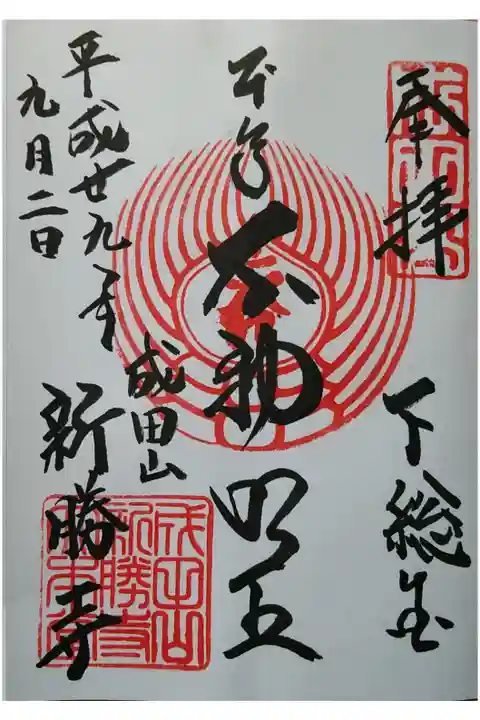 奉拝
下総国
本尊
不動明王
成田山
新勝寺
平成廿九年
九月二日
成田山
新勝寺